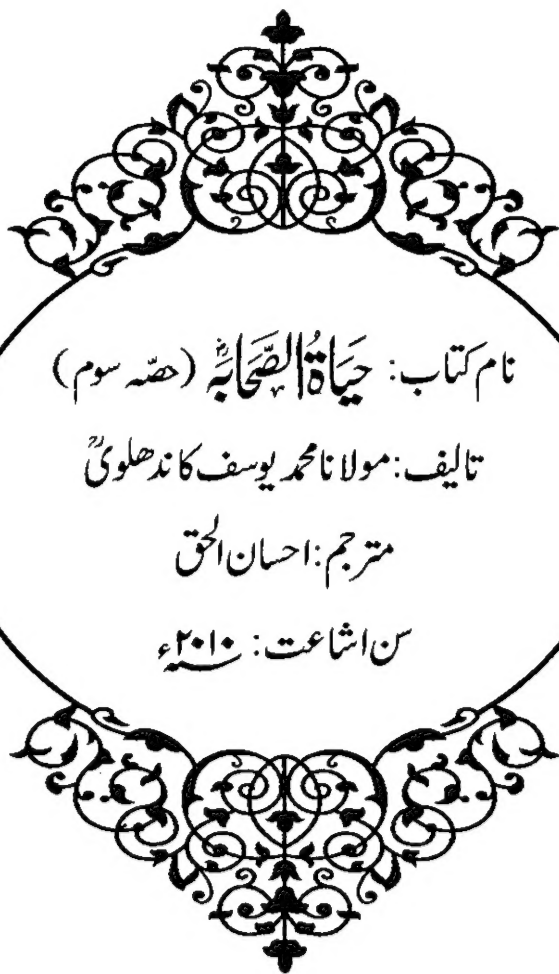 نام کتاب: حَیَاۃُ الصَّحَابَہؓ (حصّہ سوم)
تالیف: مولانا محمد یوسف کاندھلویؒ
مترجم: احسان الحق
سن اشاعت: ۲۰۱۰ء